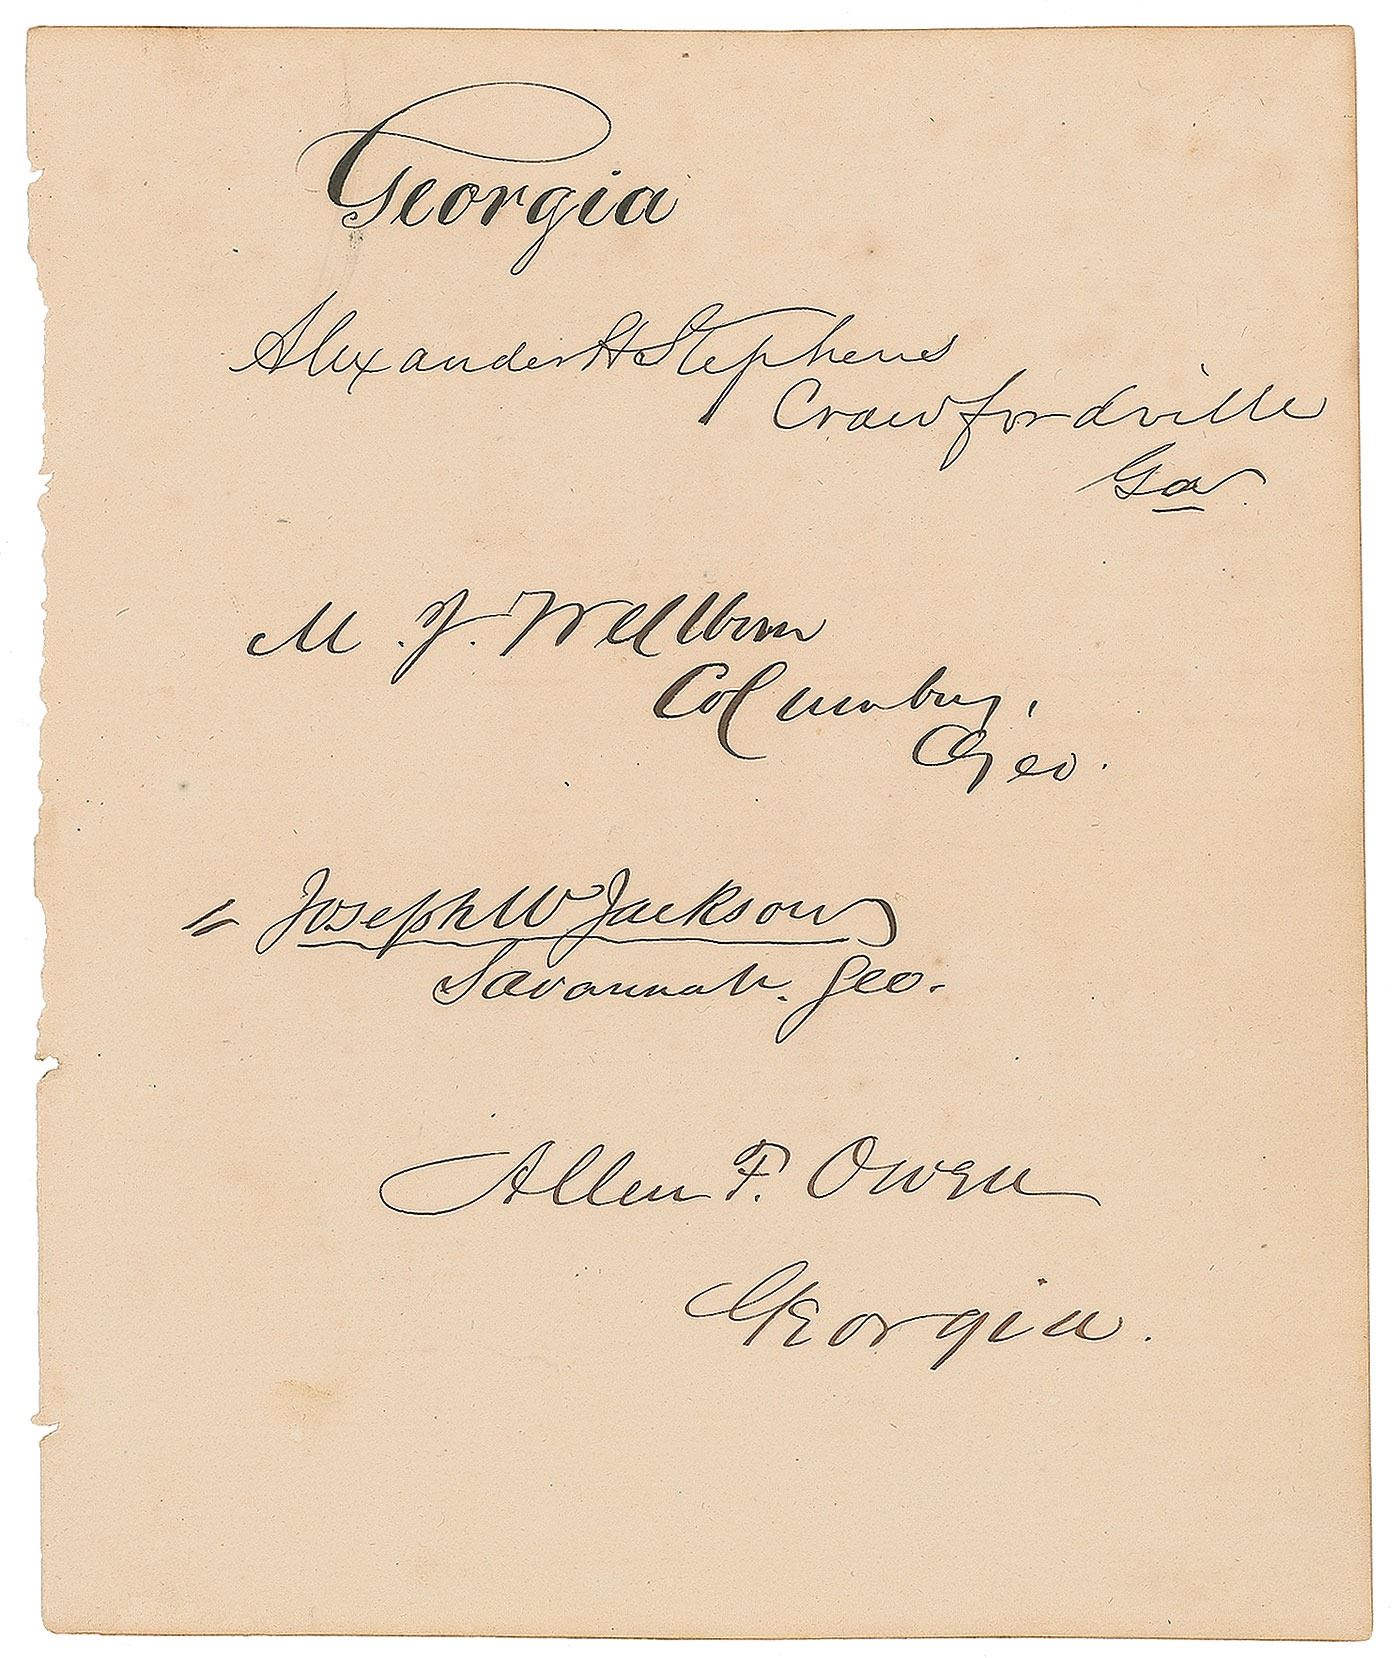 Georgia
Alexander H Stephens
Crawfordville
Ga.
M. J. Wellborn
Columbus,
Geo.
" Joseph W Jackson
Savannah. Geo.
Allen F. Owen
Georgia.